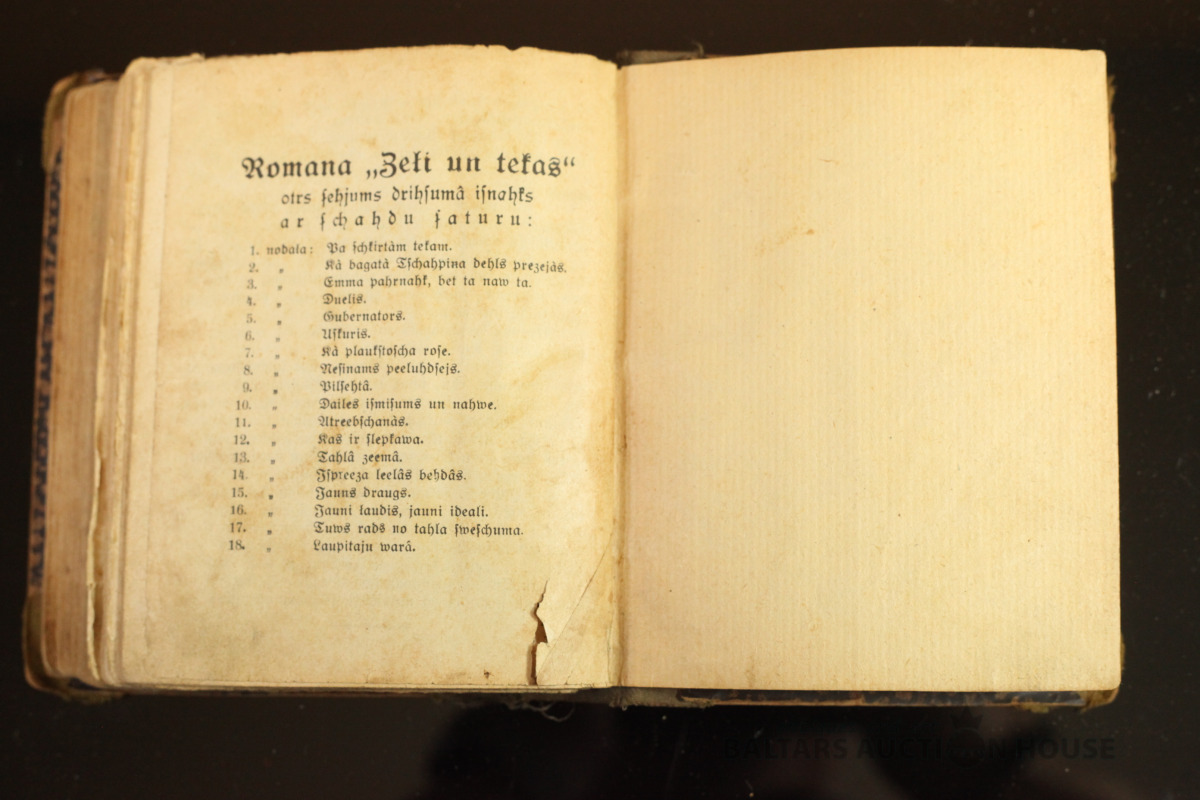 Romana „Zeli un tekas“
otrs ſehjums drihſumâ iſnahks
ar ſchahdu ſaturu:
1. nodala: Pa ſchkirtàm tekam.
2. „ Kà bagatà Tſchahpina dehls prezejàs.
3. „ Emma pahrnahk, bet ta naw ta.
4. „ Duelis.
5. „ Gubernators.
6. „ Uſkuris.
7. „ Kà plaukſtoſcha roſe.
8. „ Neſinams peeluhdſejs.
9. „ Pilſehtâ.
10. „ Dailes iſmiſums un nahwe.
11. „ Atreebſchanàs.
12. „ Kas ir ſlepkawa.
13. „ Tahlâ zeemâ.
14. „ Iſpreeza leelâs behdâs.
15. „ Jauns draugs.
16. „ Jauni laudis, jauni ideali.
17. „ Tuws rads no tahla ſweſchuma.
18. „ Laupitaju warâ.
BALTARS AUCTION HOUSE